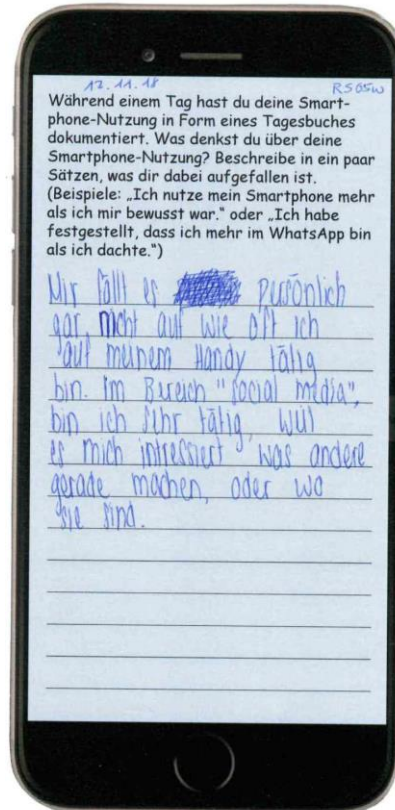 12.11.18 RS05w
Während einem Tag hast du deine Smart-
phone-Nutzung in Form eines Tagesbuches
dokumentiert. Was denkst du über deine
Smartphone-Nutzung? Beschreibe in ein paar
Sätzen, was dir dabei aufgefallen ist.
(Beispiele: „Ich nutze mein Smartphone mehr
als ich mir bewusst war." oder „Ich habe
festgestellt, dass ich mehr im WhatsApp bin
als ich dachte.")
Mir fällt es persönlich
gar nicht auf wie oft ich
auf meinem Handy tätig
bin. Im Bereich "social media",
bin ich sehr tätig, weil
es mich intressiert was andere
gerade machen, oder wo
sie sind.